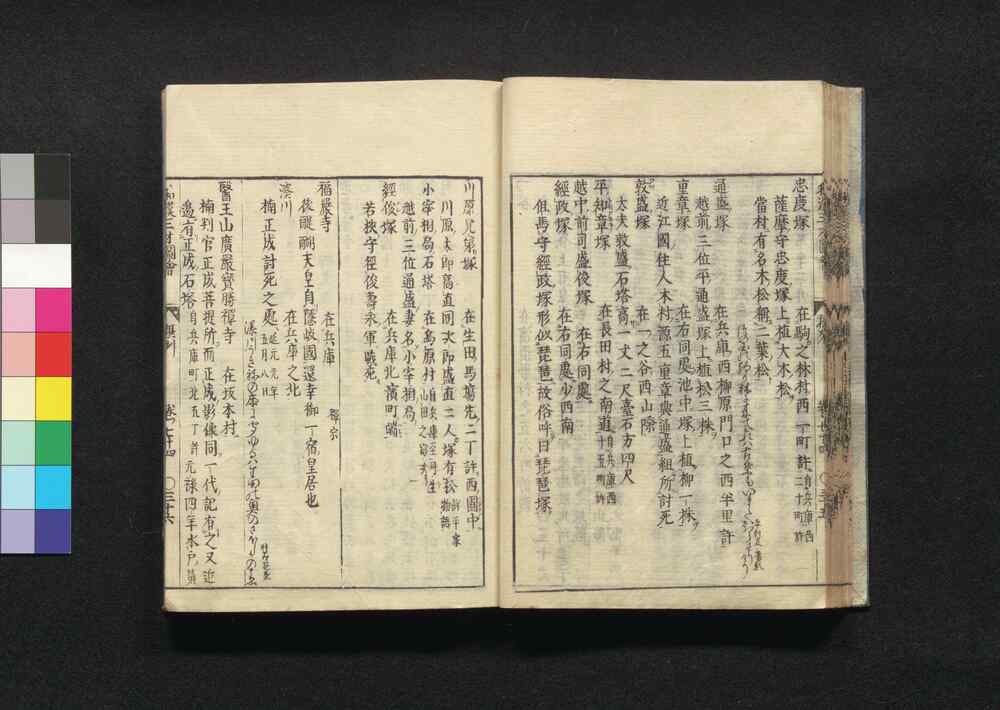 忠度塚 在駒之林村西一町許 自兵庫西二十町許
薩摩守忠度塚上植大木松
當村有名木松稱二葉松
通盛塚 在兵庫西柳原門口之西半里許
越前三位平通盛塚上植松三株
重章塚 在右同處池中塚上植柳一株
近江國住人木村源五重章與通盛組所討死
敦盛塚 在一之谷西山際
太夫敦盛石塔高一丈二尺臺石方四尺
平知章塚 在長田村之南道 自兵庫西十五町許
越中前司盛俊塚 在右同處
經政塚 在右同處少西南
但馬守經政塚形似琵琶故俗呼曰琵琶塚
川原兄弟塚 在生田馬場先二丁許西園中
川原太郎高直同次郎盛直二人塚有松 詳平家物語
小宰相局石塔 在
越前三位通盛妻名小宰相局
經俊塚 在兵庫北濱町端
若狹守經俊壽永軍戰死
福嚴寺 在兵庫 禪宗
後醍醐天皇自隱岐國還幸御一宿皇居也
湊川 在兵庫之北
楠正成討死之處 延元元年五月
醫王山廣嚴寳勝禪寺 在坂本村
楠判官正成菩提所而正成影像同一代記有之又近
邊有正成石塔 自兵庫町北五丁許 元祿四年水戸
和漢三才圖會